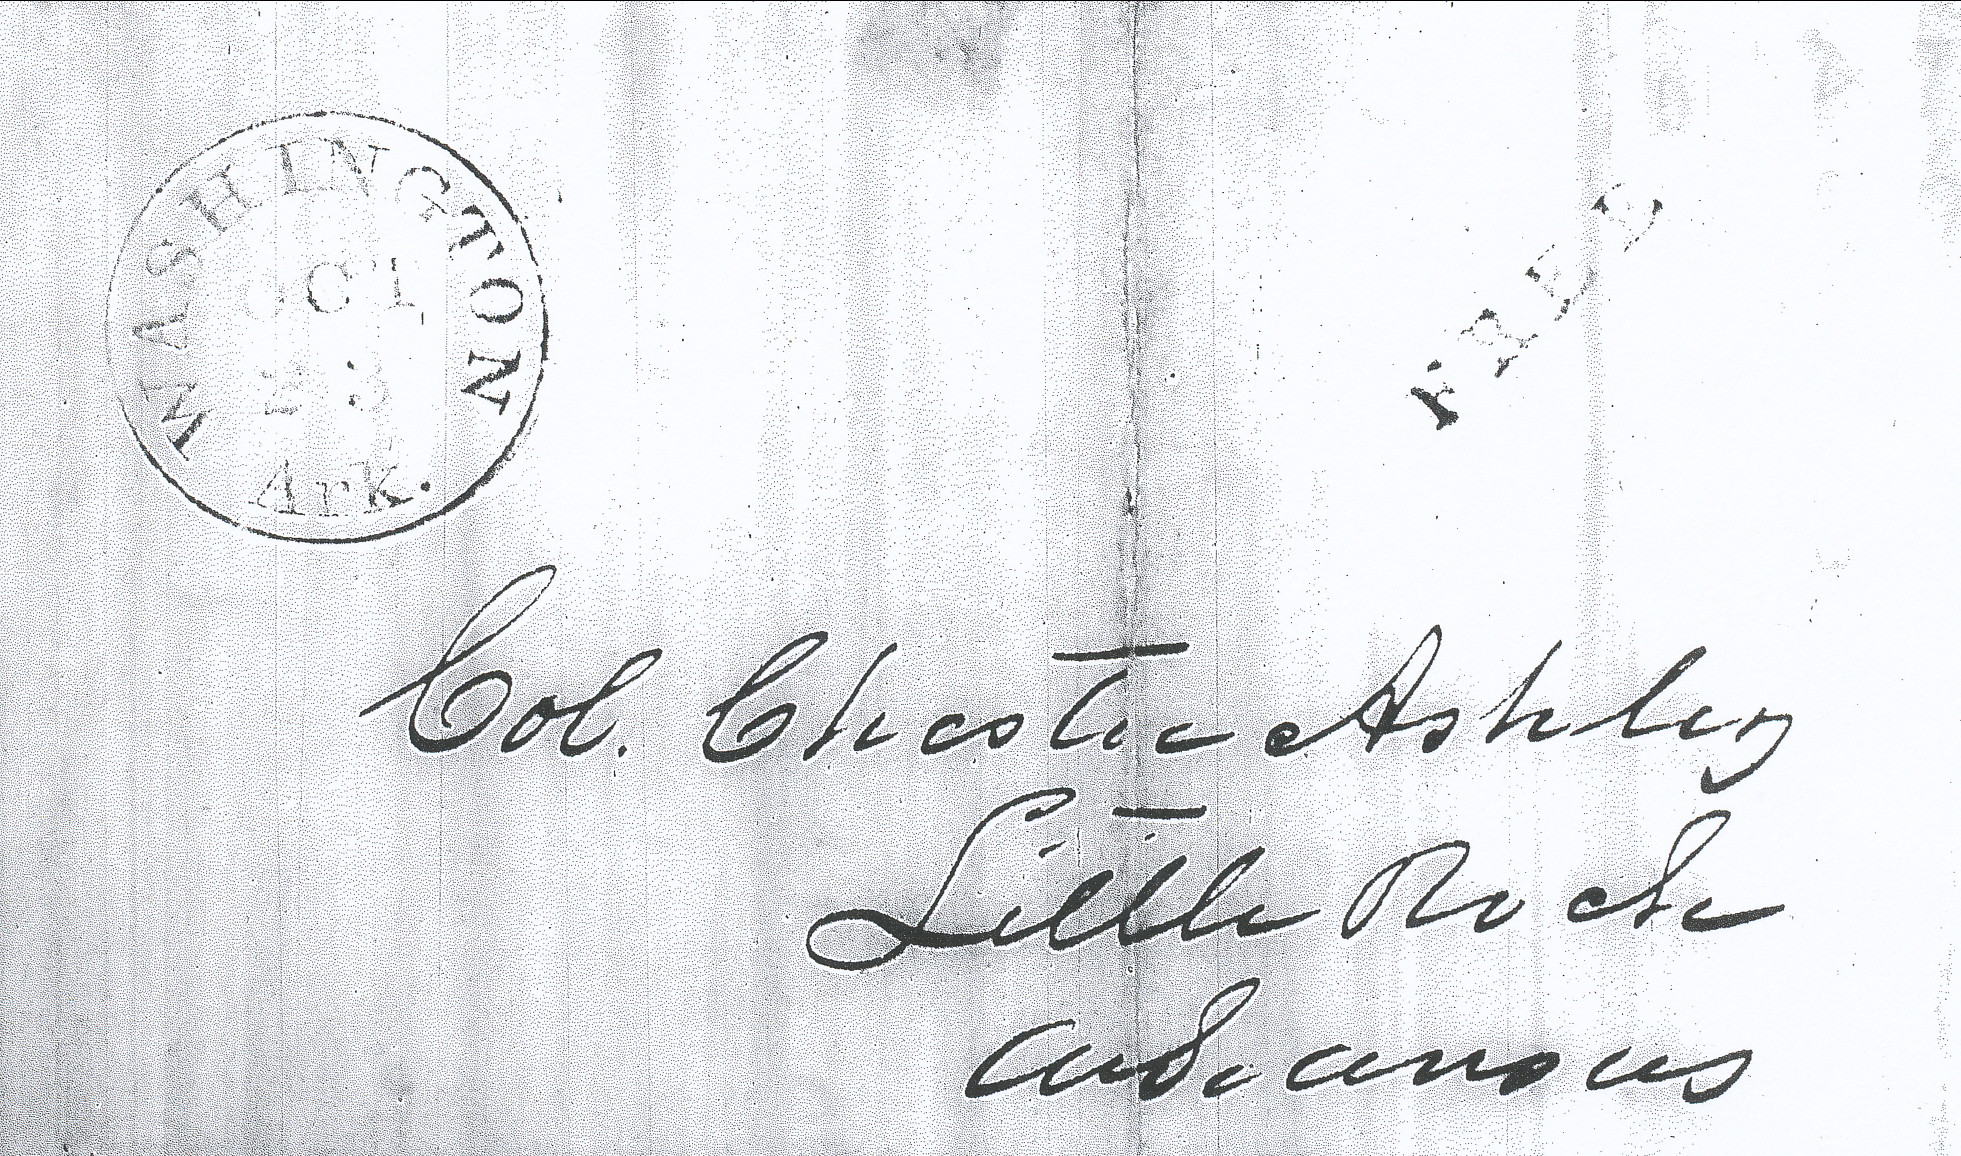 WASHINGTON
OCT
23
Ark.
FREE
Col. Chester Ashley
Little Rock
Arkansas